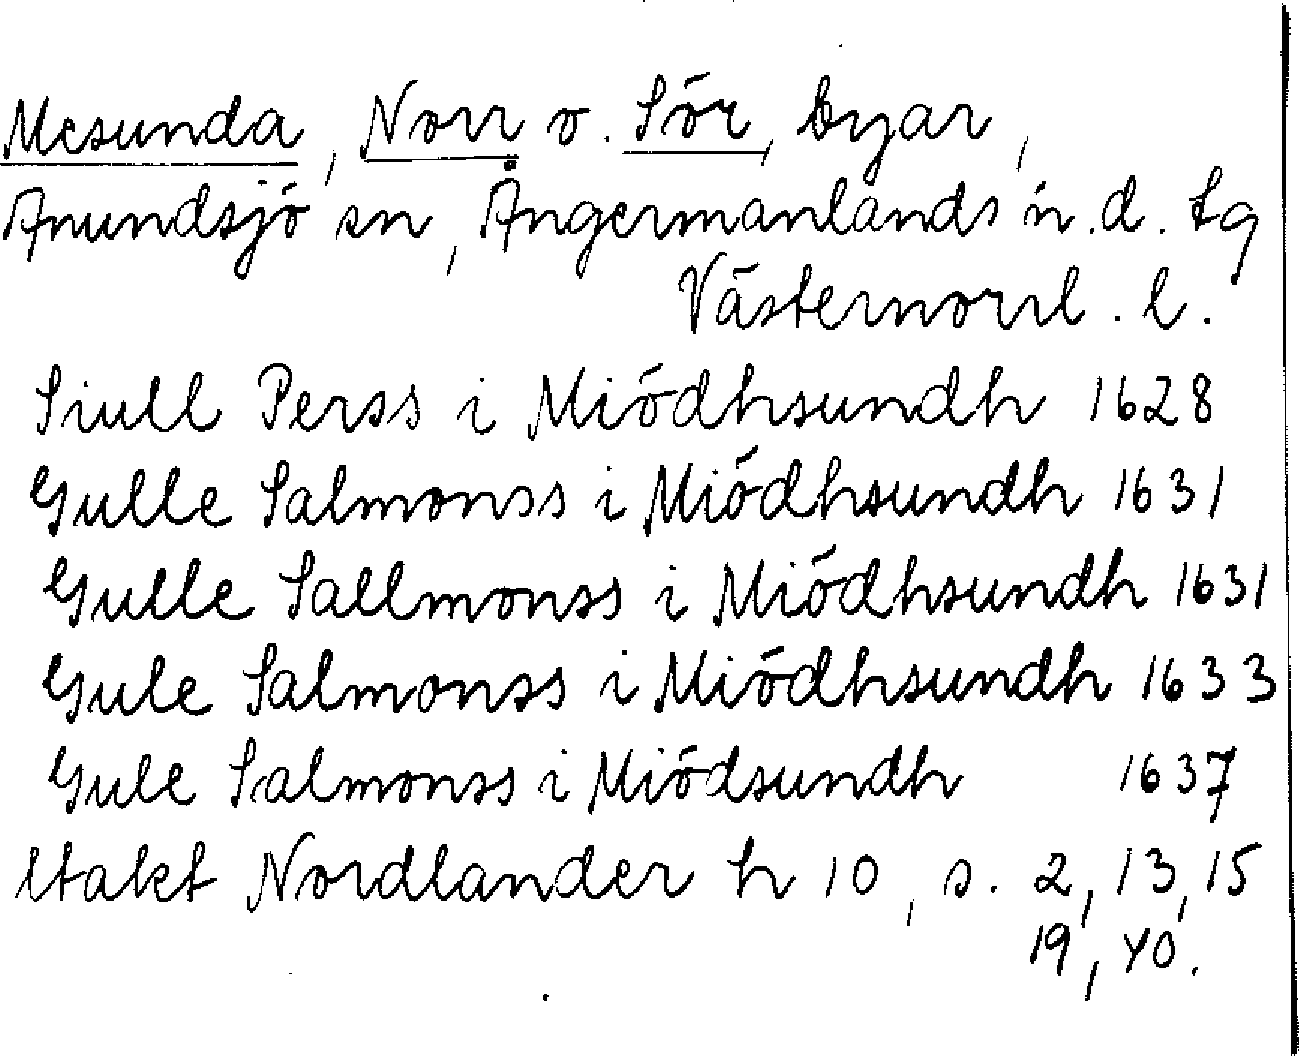 Mesunda, Norr o. Sör, byar,
Anundsjö sn, Ångermanlands n. d. tg
Västernorrl. l.
Siull Perss i Miödhsundh 1628
Gulle Salmonss i Miödhsundh 1631
Gulle Sallmonss i Miödhsundh 1631
Gule Salmonss i Miödhsundh 1633
Gule Salmonss i Miödsundh 1637
Utakt Nordlander h 10, s. 2, 13, 15
19, 40.